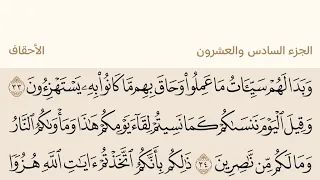 الجزء السادس والعشرون
الأحقاف
وَبَدَا لَهُمْ سَيِّـَٔاتُ مَا عَمِلُوا۟ وَحَاقَ بِهِم مَّا كَانُوا۟ بِهِۦ يَسْتَهْزِءُونَ ٣٣
وَقِيلَ ٱلْيَوْمَ نَنسَىٰكُمْ كَمَا نَسِيتُمْ لِقَآءَ يَوْمِكُمْ هَٰذَا وَمَأْوَىٰكُمُ ٱلنَّارُ
وَمَا لَكُم مِّن نَّٰصِرِينَ ٣٤ ذَٰلِكُم بِأَنَّكُمُ ٱتَّخَذْتُمْ ءَايَٰتِ ٱللَّهِ هُزُوًا